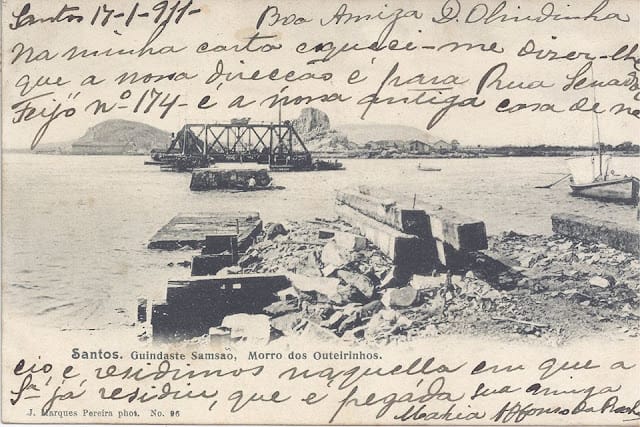 Santos 17-1-911- Boa Amiga D. Olindinha
Na minha carta esqueci-me dizer-lhe
que a nossa direccão é para Rua Senador
Feijó nº 174- é a nossa antiga casa de ne
Santos. Guindaste Samsão, Morro dos Outeirinhos.
cio, e residimos naquella em que a
Sra já residiu, que é pegáda sua amiga
J. Marques Pereira phot. No. 96
Maria Affonso da